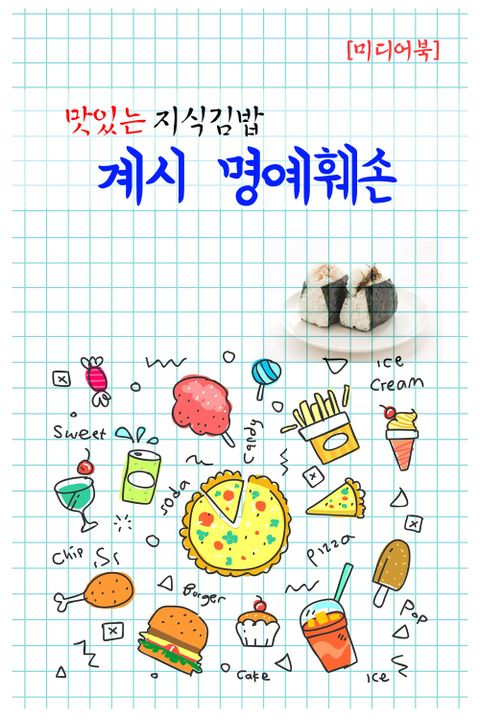 [미디어북]
맛있는 지식김밥
계시 명예훼손
ice
cream
Sweet
candy
soda
Chip ,s,
pizza
Burger
Pop
Cake
ice